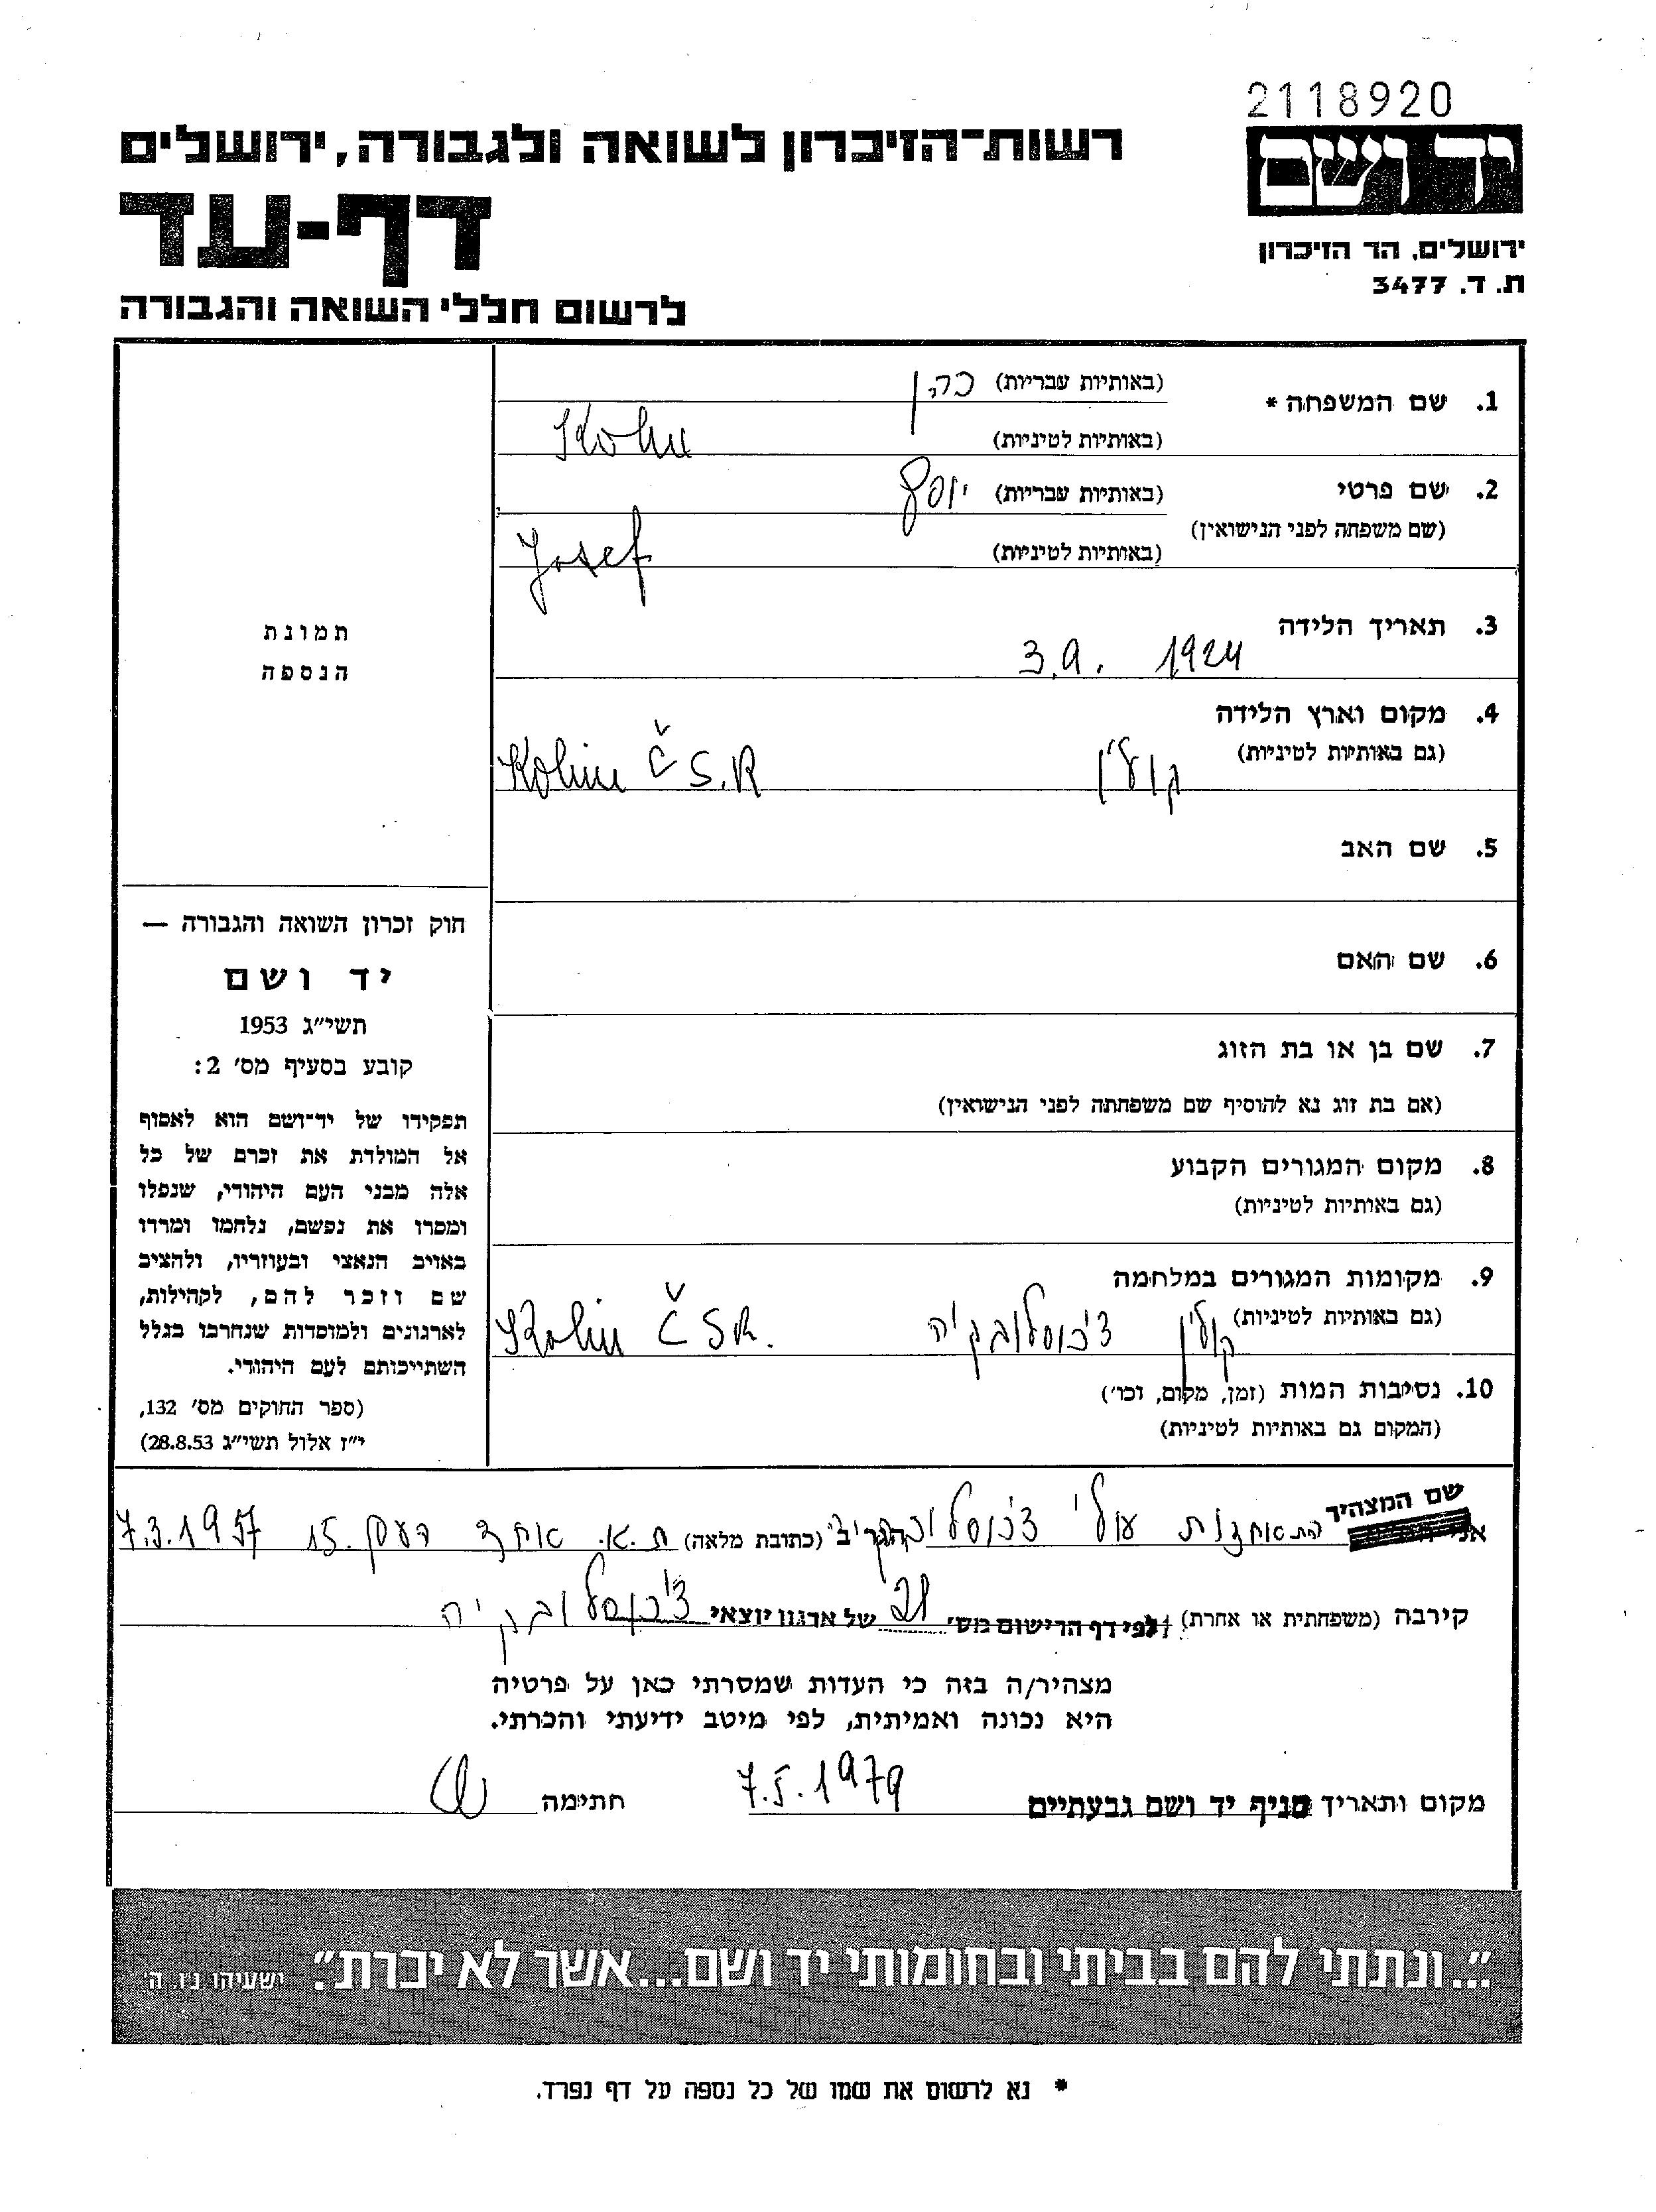 2118920
יד ושם
ירושלים, הר הזיכרון
ת. ד. 3477
רשות-הזיכרון לשואה ולגבורה, ירושלים
דף-עד
לרשום חללי השואה והגבורה
1. שם המשפחה * (באותיות עבריות) כהן
(באותיות לטיניות) Kohn
2. שם פרטי (באותיות עבריות) יוסף
(שם משפחה לפני הנישואין)
(באותיות לטיניות) Josef
3. תאריך הלידה
3.9. 1924
4. מקום וארץ הלידה
(גם באותיות לטיניות) קולין Kolin ČS.R
5. שם האב
6. שם האם
7. שם בן או בת הזוג
(אם בת זוג נא להוסיף שם משפחתה לפני הנישואין)
8. מקום המגורים הקבוע
(גם באותיות לטיניות)
9. מקומות המגורים במלחמה
(גם באותיות לטיניות) קולין צ'כוסלובקיה Kolin ČSR.
10. נסיבות המות (זמן, מקום, וכו')
(המקום גם באותיות לטיניות)
תמונת
הנספה
חוק זכרון השואה והגבורה —
יד ושם
תשי"ג 1953
קובע בסעיף מס' 2:
תפקידו של יד-ושם הוא לאסוף
אל המולדת את זכרם של כל
אלה מבני העם היהודי, שנפלו
ומסרו את נפשם, נלחמו ומרדו
באויב הנאצי ובעוזריו, ולהציב
שם וזכר להם, לקהילות,
לארגונים ולמוסדות שנחרבו בגלל
השתייכותם לעם היהודי.
(ספר החוקים מס' 132,
י"ז אלול תשי"ג 28.8.53)
שם המצהיר
התאחדות עולי צ'כוסלובקיה (כתובת מלאה) ת.א. אחד העם 15. 7.3.1957
קירבה (משפחתית או אחרת) לפי דף הרישום מס' 28 של ארגון יוצאי צ'כוסלובקיה
מצהיר/ה בזה כי העדות שמסרתי כאן על פרטיה
היא נכונה ואמיתית, לפי מיטב ידיעתי והכרתי.
מקום ותאריך סניף יד ושם גבעתיים 7.5.1979 חתימה
"...ונתתי להם בביתי ובחומותי יד ושם...אשר לא יכרת". ישעיהו נ"ו. ה'
* נא לרשום את שמו של כל נספה על דף נפרד.